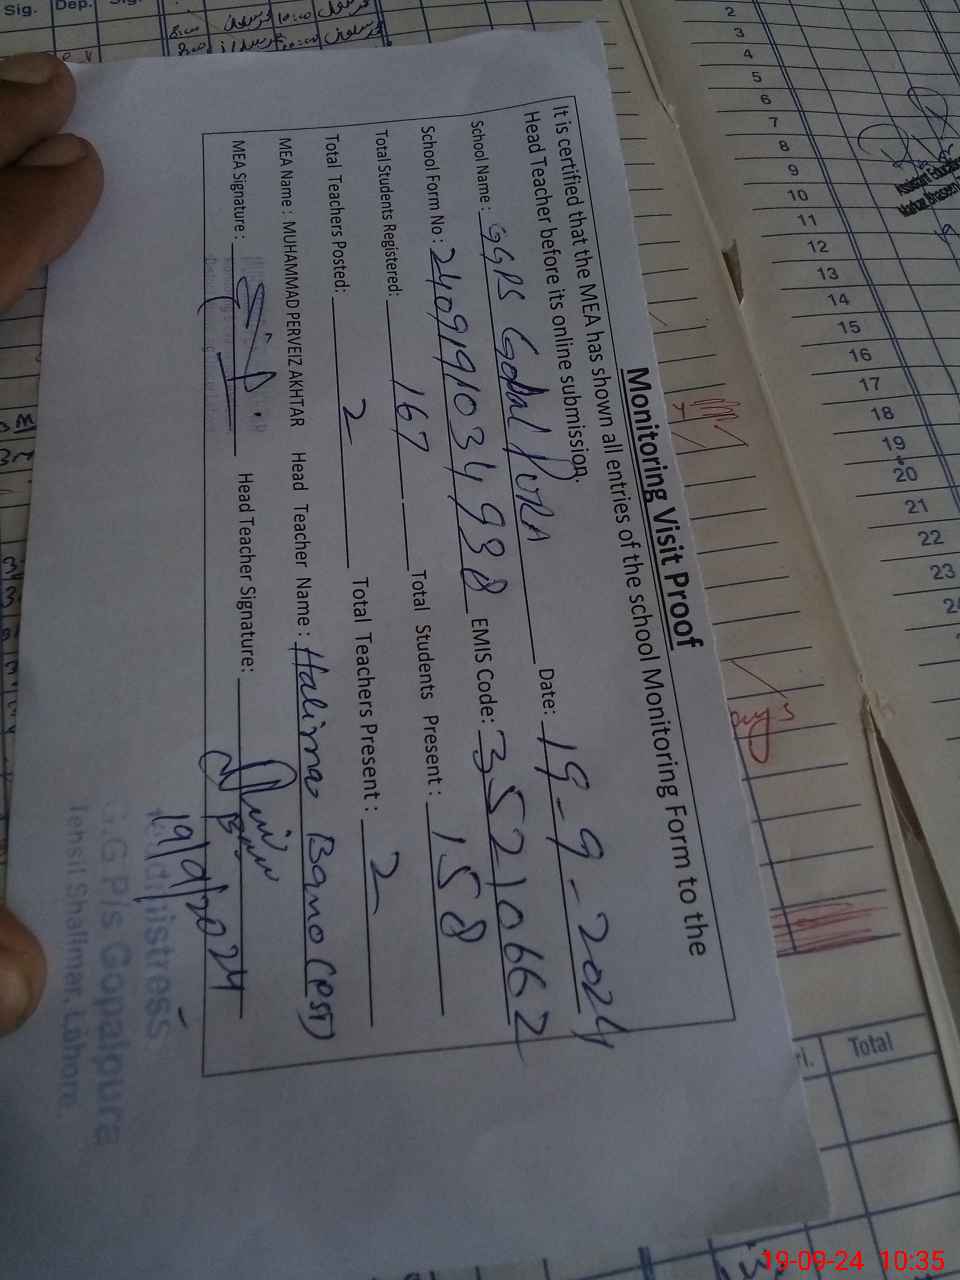 Monitoring Visit Proof
It is certified that the MEA has shown all entries of the school Monitoring Form to the
Head Teacher before its online submission.
School Name: GGPS Gopal Pura Date: 19-9-2024
School Form No: 2409191034938 EMIS Code: 35210662
Total Students Registered: 167 Total Students Present: 158
Total Teachers Posted: 2 Total Teachers Present: 2
MEA Name: MUHAMMAD PERVEIZ AKHTAR Head Teacher Name: Halima Bano (PST)
MEA Signature: Head Teacher Signature:
19/9/2024
G.G P/s Gopalpura
Tehsil Shalimar, Lahore.
Sig. Dep.
2
3
4
5
6
7
8
9
10
11
12
13
14
15
16
17
18
19
20
21
22
23
Total
19-09-24 10:35